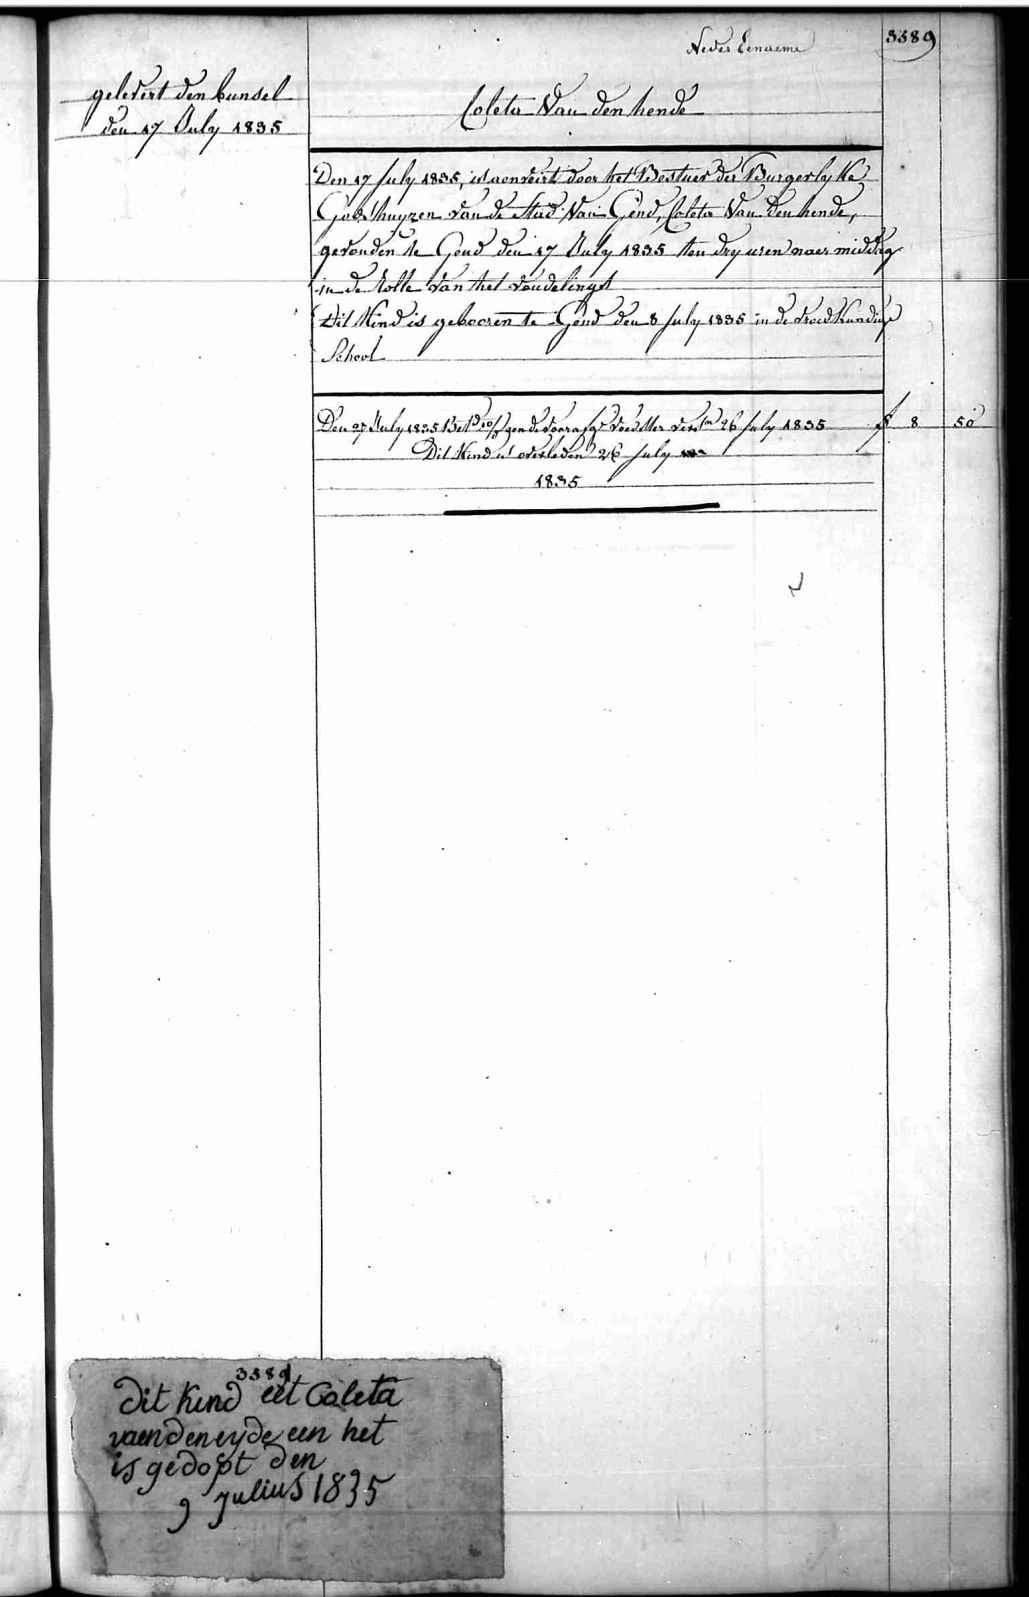 Neder Eename
3389
gelevert den bunsel
den 17 July 1835
Coleta Van den hende
Den 17 July 1835, is aenveirt door het Bestuer der Burgerlyke
Godshuyzen van de Stad Van Gend, Coleta Van den hende,
gevonden te Gend den 17 July 1835 ten dry uren naer middag
in de Rolle van het vondelingst
Dit Kind is gebooren te Gend den 8 July 1835 in de vroedkundige
School
Den 27 July 1835 July 1835 f 8 50
Dit Kind is overleden 26 July
1835
3389
Dit kind eet Coleta
vaendeneyde een het
is gedopt den
9 Julius 1835